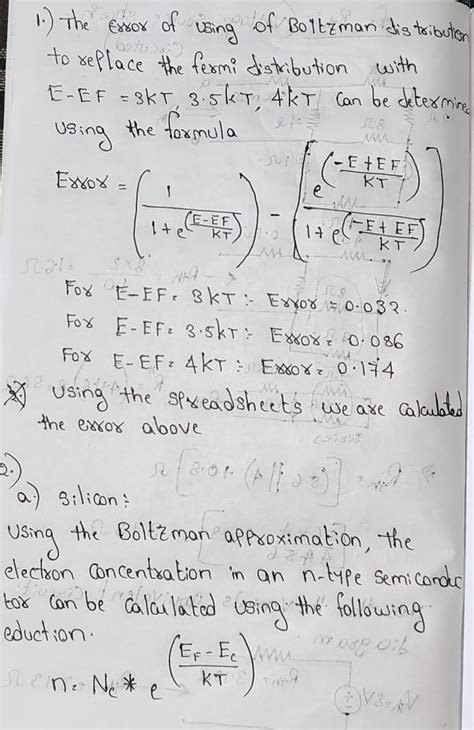 1.) The error of using of Boltzman distribution
to replace the fermi distribution with
E-EF = 3KT, 3.5KT, 4KT can be determined
using the formula
Error = (1 / 1+e^((E-EF)/KT)) - [e^((-E+EF)/KT) / 1+e^((-E+EF)/KT)]
For E-EF= 3KT :- Error = 0.032.
For E-EF= 3.5KT :- Error= 0.086
For E-EF= 4KT :- Error= 0.174
Using the spreadsheets we are calculated
the error above
2.)
a.) Silicon:
Using the Boltzman approximation, the
electron concentration in an n-type semiconduc
tor can be calculated using the following
eduction.
n = Nc * e^((EF - Ec)/KT)